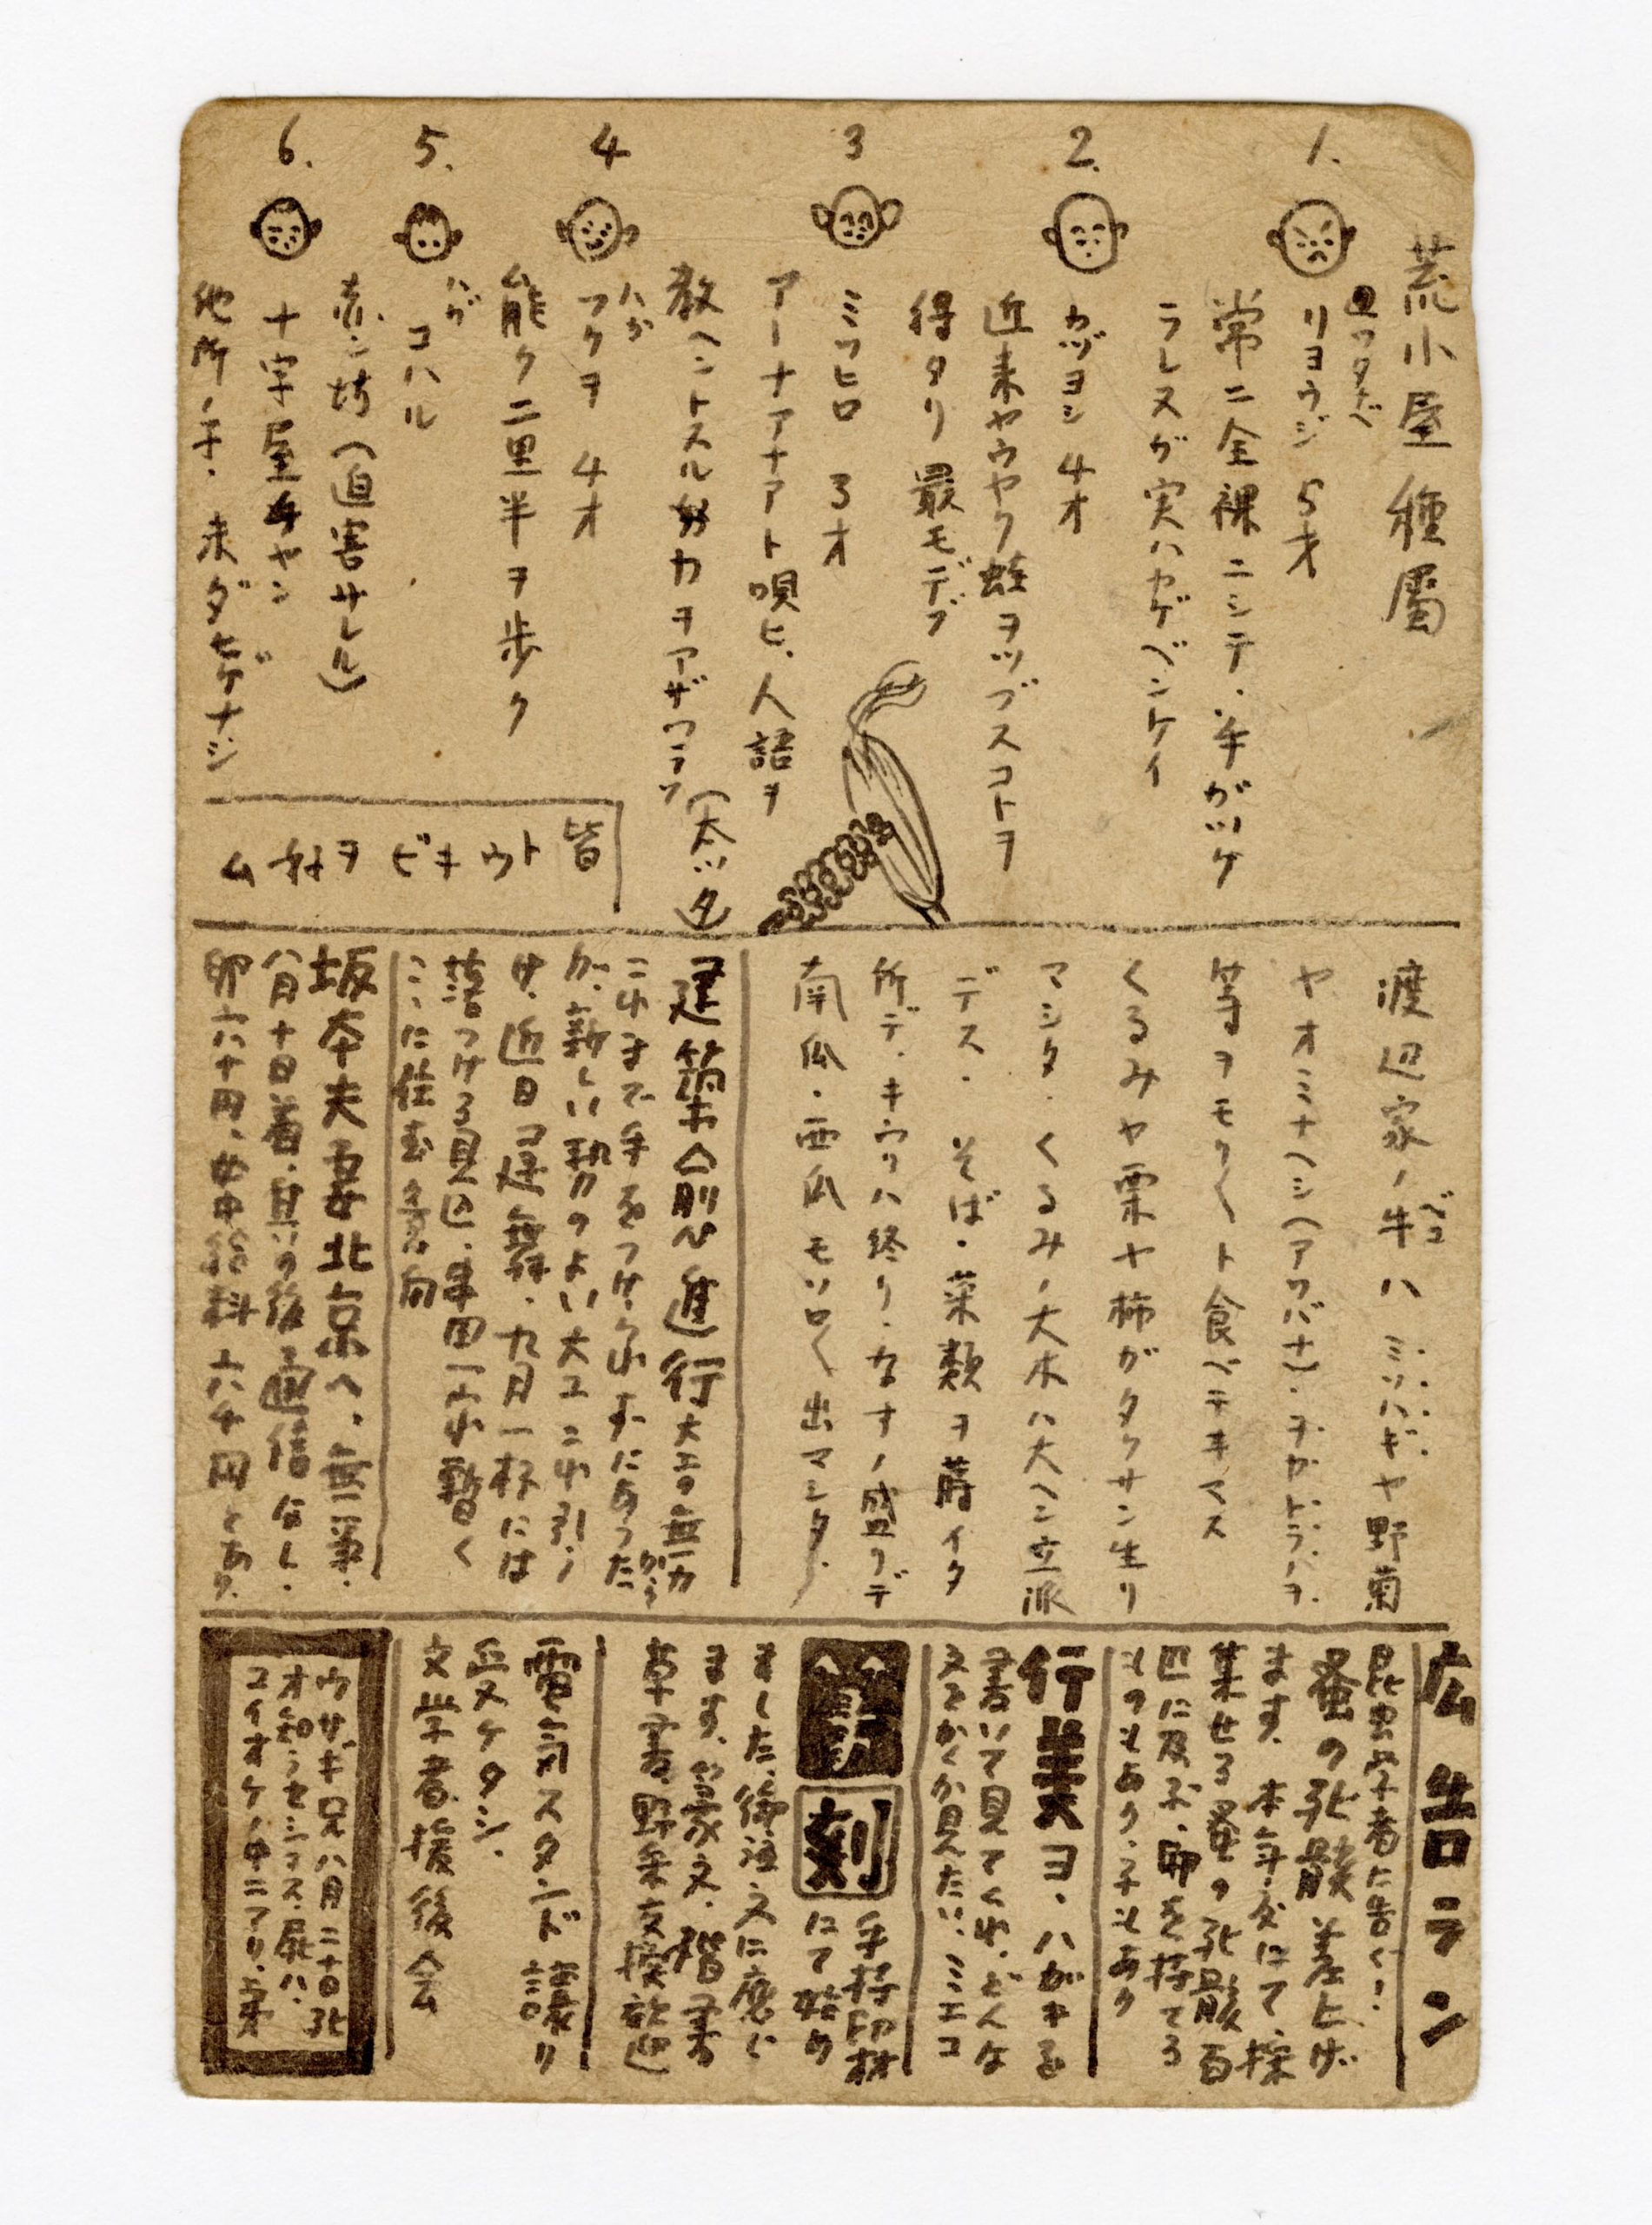 荒小屋種属
1.
ワタナベ
リヨウジ 5才
常ニ全裸ニシテ.手ガツケ
ラレヌガ実ハカゲベンケイ
2.
カヅヨシ 4才
近来ヤウヤク蛙ヲツブスコトヲ
得タリ 最モデブ
3
ミツヒロ 3才
アーナアナアト唄ヒ、人語ヲ
教ヘントスル努力ヲアザワラフ
(太ッタ)
4
ハガ
フクヲ 4才
能ク二里半ヲ歩ク
5.
ハガ
コハル
赤ン坊(迫害サレル)
6.
十字屋チャン
地所ノ子.未ダヒゲナシ
皆トウキビヲ好ム
渡辺家ノ牛ハ ミソハギヤ野菊
ベコ
ヤオミナヘシ(アワバナ)・ヲカトラノヲ
等ヲモリ〱ト食ベテキマス
くるみヤ栗ヤ柿ガタクサン生リ
マシタ.くるみノ大木ハ大ヘン立派
デス. そば・菜類ヲ蒔イタ
所デ.キウリハ終リ.なすノ盛リデ
南瓜・西瓜モソロ〱出マシタ.
建築命懸進行 大工の無力
これまで手をつけられずにあった
が、新しい勢のよい大工これを引ノ
サ、近日中建舞、九月一杯には
落つける見込、串田一家暫く
ここに住む意向
坂本夫妻北京へ、無事.
八月十日着.其の後通信なし.
卵六十円、女中給料六千円とあり.
広告ラン
昆虫学者に告ぐ!
蚤の死骸差上げ
ます.本年夏にて、採
集せる蚤の死骸百
匹に及ぶ.卵を持てる
ものもあり.子もあり
行美ヨ、ハがキを
書いて見てくれ.どんな
文でかくか見たい.ミエコ
篆刻
手持印材
にて始め
ました.御注文に応じ
ます.篆文.楷書
草書.野菜交換歓迎
電気スタンド譲リ
受ケタシ.
文学者援後会
ウサギ兄八月二十日死
オ知ラセシマス.屍ハ.
コイオケノ中ニアリ.弟